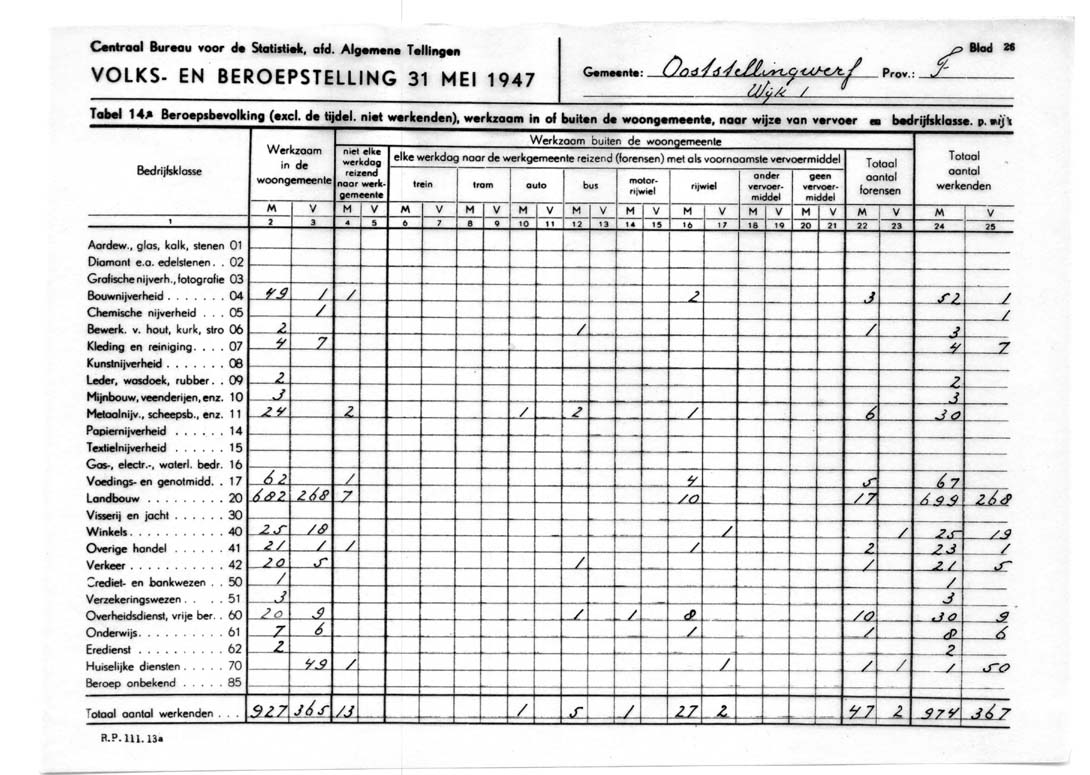 Centraal Bureau voor de Statistiek, afd. Algemene Tellingen
VOLKS- EN BEROEPSTELLING 31 MEI 1947
Gemeente: Ooststellingwerf Prov.: F
Wijk 1
Blad 26
Tabel 14.a Beroepsbevolking (excl. de tijdel. niet werkenden), werkzaam in of buiten de woongemeente, naar wijze van vervoer en bedrijfsklasse. p. wijk
Bedrijfsklasse
Werkzaam
in de
woongemeente
Werkzaam buiten de woongemeente
niet elke
werkdag
reizend
naar werk-
gemeente
elke werkdag naar de werkgemeente reizend (forensen) met als voornaamste vervoermiddel
trein tram auto bus motor-
rijwiel rijwiel
ander
vervoer-
middel
geen
vervoer-
middel
Totaal
aantal
forensen
Totaal
aantal
werkenden
M V M V M V M V M V M V M V M V M V M V M V M V
1 2 3 4 5 6 7 8 9 10 11 12 13 14 15 16 17 18 19 20 21 22 23 24 25
Aardew., glas, kalk, stenen 01
Diamant e.a. edelstenen . . 02
Grafische nijverh., fotografie 03
Bouwnijverheid . . . . . . . 04 49 1 1 2 3 52 1
Chemische nijverheid . . . 05 1 1
Bewerk. v. hout, kurk, stro 06 2 1 1 3
Kleding en reiniging. . . . 07 4 7 4 7
Kunstnijverheid . . . . . . . 08
Leder, wasdoek, rubber. . 09 2 2
Mijnbouw, veenderijen, enz. 10 3 3
Metaalnijv., scheepsb., enz. 11 24 2 1 2 1 6 30
Papiernijverheid . . . . . . 14
Textielnijverheid . . . . . . 15
Gas-, electr.-, waterl. bedr. 16
Voedings- en genotmidd. . 17 62 1 4 5 67
Landbouw . . . . . . . . . 20 682 268 7 10 17 699 268
Visserij en jacht . . . . . . 30
Winkels. . . . . . . . . . . 40 25 18 1 1 25 19
Overige handel . . . . . . 41 21 1 1 1 2 23 1
Verkeer . . . . . . . . . . . 42 20 5 1 1 21 5
Crediet- en bankwezen . . 50 1 1
Verzekeringswezen. . . . 51 3 3
Overheidsdienst, vrije ber. . 60 20 9 1 1 8 10 30 9
Onderwijs. . . . . . . . . . 61 7 6 1 1 8 6
Eredienst . . . . . . . . . . 62 2 2
Huiselijke diensten . . . . . 70 49 1 1 1 1 1 50
Beroep onbekend . . . . . 85
Totaal aantal werkenden . . . 927 365 13 1 5 1 27 2 47 2 974 367
R.P. 111. 13a